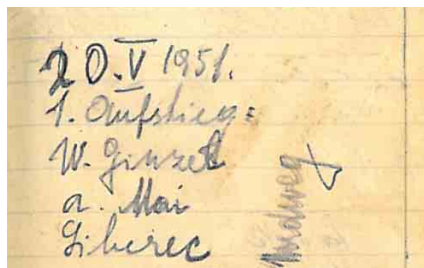 20.V 1951.
1. Aufstieg:
W. Ginzel
a. Mai
Liberec
Südweg